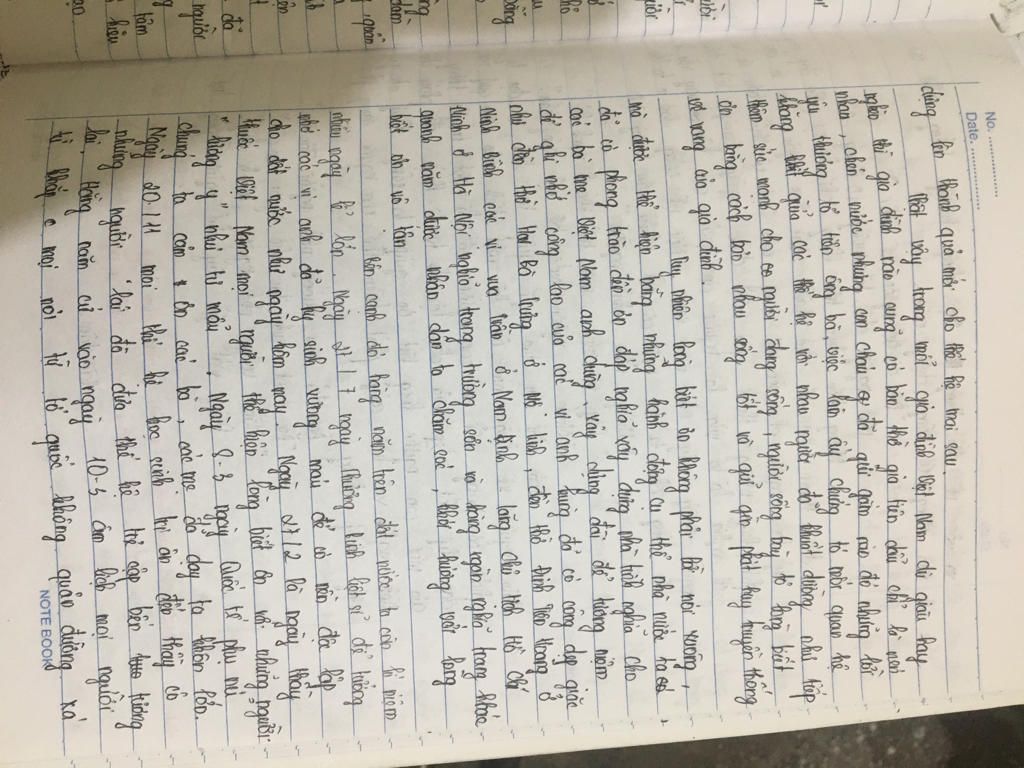 No. ..............
Date. ..............
dựng lên thành quả mới cho thế hệ mai sau.
Thật vậy trong mỗi gia đình Việt Nam dù giàu hay
nghèo thì gia đình nào cũng có bàn thờ gia tiên dẫu chỉ là nén
nhan, chén nước nhưng con cháu đã gửi gắm vào đó những lời
yêu thương tổ tiên ông bà, việc làm ấy chứng tỏ mối quan hệ
khăng khít giữa các thế hệ với nhau người đã khuất dường như tiếp
thêm sức mạnh cho người đang sống, người sống bày tỏ lòng biết
ơn bằng cách bảo nhau sống tốt và giữ gìn phát huy truyền thống
vẻ vang của gia đình.
Tuy nhiên lòng biết ơn không phải lời nói suông,
mà được thể hiện bằng những hành động cụ thể nhà nước ta
đã có phong trào đền ơn đáp nghĩa xây dựng nhà tình nghĩa cho
các bà mẹ Việt Nam anh hùng, xây dựng đài đổ tưởng niệm
để ghi nhớ công lao của các vị anh hùng đã có công dẹp giặc
như đền thờ Hai Bà Trưng ở Mê Linh, đền thờ Đinh Tiên Hoàng ở
Ninh Bình các vị vua Trần ở Nam Định lăng chủ tịch Hồ Chí
Minh ở Hà Nội nghĩa trang trường sơn và hàng ngàn nghĩa trang khác
quanh năm được nhân dân ta chăm sóc, thắp hương với lòng
biết ơn vô tận
Bên cạnh đó hàng năm trên đất nước ta còn kỉ niệm
nhiều ngày lễ lớn. Ngày 27/7 ngày thương binh liệt sĩ để tưởng
nhớ các vị anh đã hy sinh xương máu để có nền độc lập
cho đất nước như ngày hôm nay. Ngày 27/2 là ngày thầy
thuốc Việt Nam mọi người thể hiện lòng biết ơn với những người
"lương y như từ mẫu". Ngày 8-3 ngày Quốc tế phụ nữ
chúng ta cảm ơn các bà, các mẹ đã dạy ta khôn lớn.
Ngày 20/11 mọi thế hệ học sinh tri ân đến thầy cô
những người lái đò đưa thế hệ trẻ cập bến tương
lai, Hàng năm cứ vào ngày 10-3 âm lịch mọi người
từ khắp mọi nơi từ tổ quốc không quản đường xá
NOTE BOOK